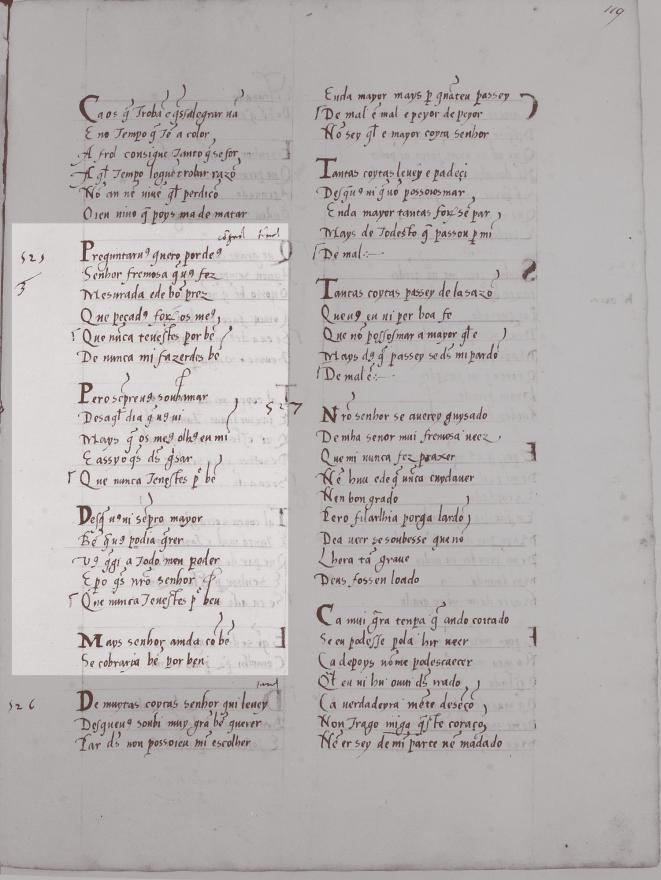 119
Ca os q̄ Trobā e q̄ss alegrar uā
E no Tempo q̄ Tē a color
A frol consigue Tanto q̄ se for
A q̄l Tempo logue trobar razō
Nō an nē uiuē q̄l perdiçō
Oieu uiuo q̄ poys ma de matar
525
Preguntaru9 quero por de9
Senhor fremosa q̄ u9 fez
Mesurada e de bō prez
Que pecad9 forō os me9
Que nūca teuestes por bē
De nunca mi fazerdes bē
Pero sēpreu9 soubamar
Des aq̄l dia q̄ u9 ui
Mays q̄ os me9 olh9 eu mi
E assy o q̄s d̄s ḡsar
Que nunca Teuestes p̄ bē
Des q̄ u9 ui sēpro mayor
Bē q̄ u9 podia q̄rer
U9 q̄gi a Todo meu poder
E po q̄s nr̄o senhor
Que nunca Teuestes p̄ beu
Mays senhor ainda cō bē
Se cobraria bē por ben
526
De muytas coytas senhor qui leuey
Des que u9 soubi muy grā bē querer
Par d̄s non posso ieu mi escolher
Enda mayor mays p̄ quāteu passey
De mal ē mal e peyor de peyor
Nō sey q̄l e mayor coyta senhor
Tantas coytas leuey e padeçi
Des q̄ u9 ui q̄ nō posso iosmar
Enda mayor tantas forō sē par
Mays de Todesto q̄ passou p̄ mi
De mal
Tantas coytas passey de la sazō
Que u9 eu ui per boa fe
Que nō posso osmar a mayor q̄l e
Mays d9 q̄ passey se d̄s mi pardō
De mal ē
527
Nr̄o senhor se auerey guysado
De mha senor mui fremosa ueer
Que mi nunca fez praxer
Nen bon grado
Pero filarlhia por galardō
Dea ueer se soubesse que nō
Lhera tā graue
Deus fossen loado
Ca mui grā tenpa q̄ ando coytado
Se eu podesse pola hir ueer
Ca depoys nō me pod escaecer
Q̄l eu ui hu ouui d̄s irado
Ca uerdadeyra mēte deseço
Non Trago migo q̄ste coraçō
Nē er sey de mi parte nē mādado